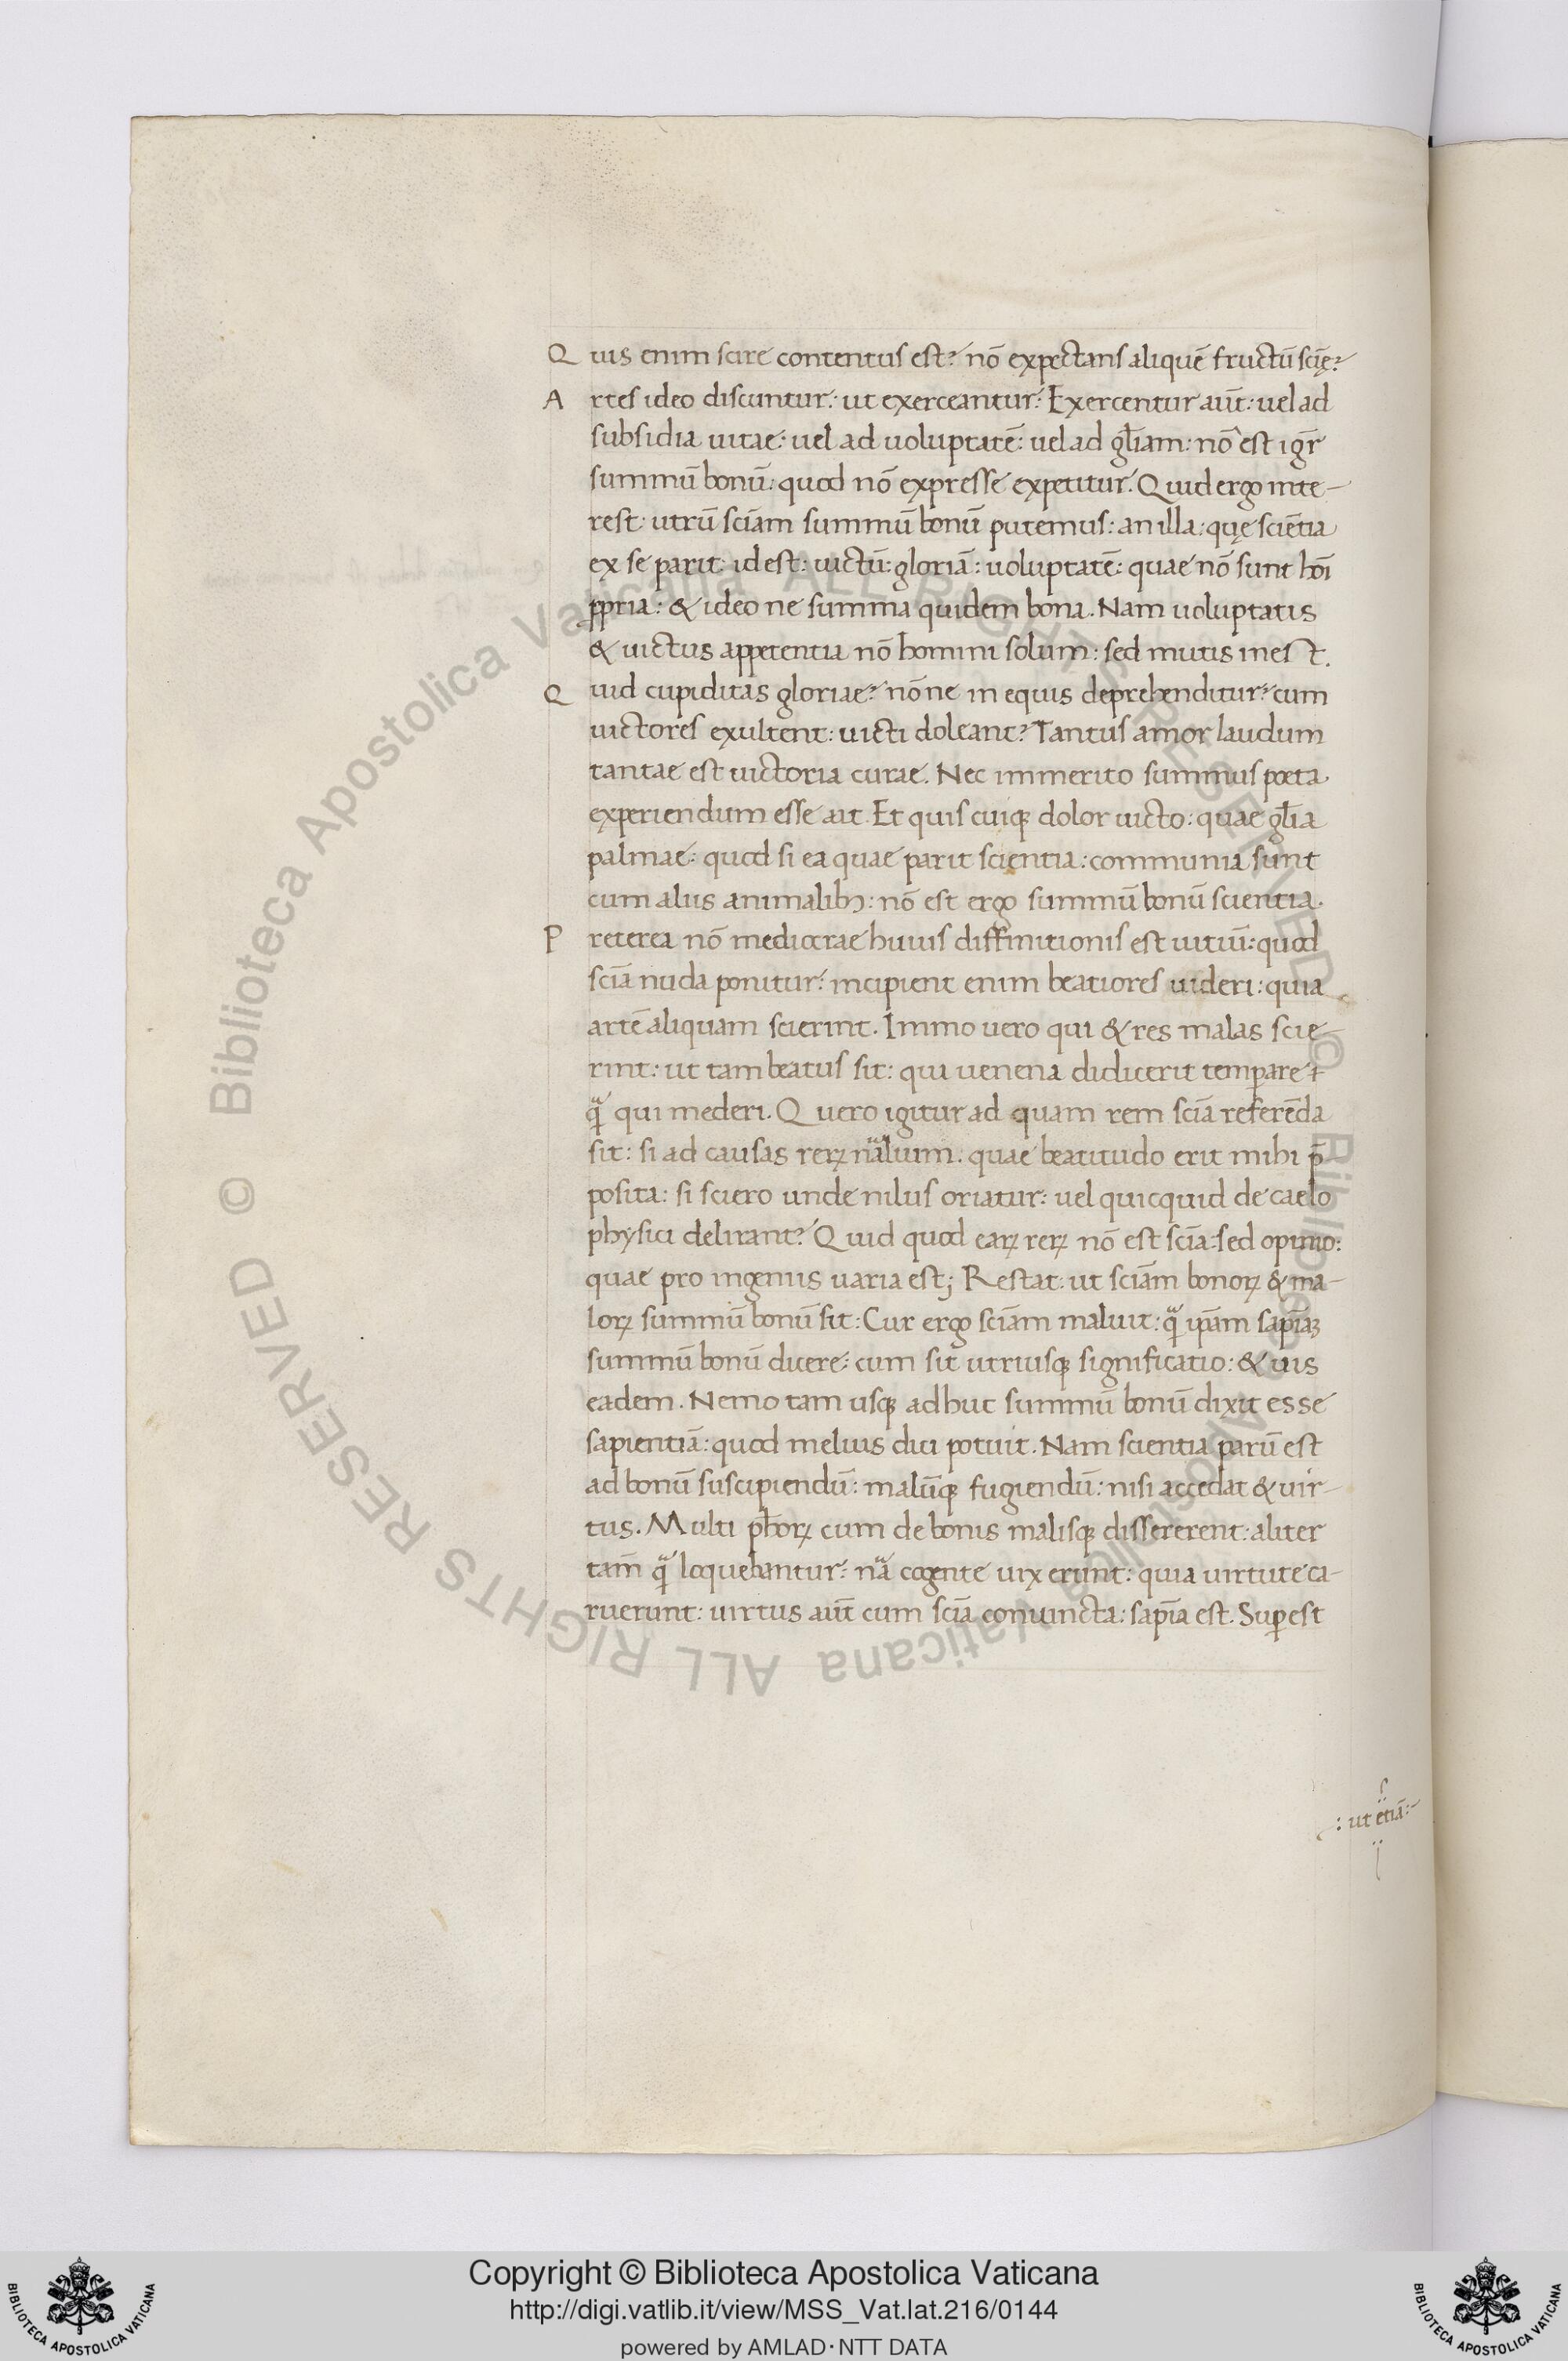 Quis enim scire contentus est? nō expectans aliquē fructū sciē?
Artes ideo discuntur: ut exerceantur: Exercentur aūt: uel ad
subsidia uitae: uel ad uoluptatē: uel ad gl̄iam: nō est igr̄
summū bonū: quod nō expresse expetitur. Quid ergo inte-
rest: utrū sciām summū bonū putemus: an illa: quę sciētia
ex se parit: id est: uictū: gloriā: uoluptatē: quae nō sunt hōi
ꝓpria: & ideo ne summa quidem bona. Nam uoluptatis
& uictus appetentia nō homini solum: sed mutis inest.
Quid cupiditas gloriae? nōne in equis deprehenditur? cum
uictores exultent: uicti doleant? Tantus amor laudum
tantae est uictoria curae. Nec immerito summus poeta
experiendum esse ait. Et quis cuiqꝫ dolor uicto: quae gl̄ia
palmae: quod si ea quae parit scientia: communia sunt
cum aliis animalibꝫ: nō est ergo summū bonū scientia.
Preterea nō mediocrae huius diffinitionis est uitiū: quod
sciā nuda ponitur: incipient enim beatiores uideri: quia
artē aliquam scierint. Immo uero qui & res malas scie-
rint: ut tam beatus sit: qui uenena didicerit temperare
qᷓ qui mederi. Quero igitur ad quam rem sciā referēda
sit: si ad causas rerꝝ nᷓalium. quae beatitudo erit mihi p̄
posita: si sciero unde nilus oriatur: uel quicquid de caelo
physici delirant? Quid quod earꝝ rerꝝ nō est sciā: sed opinio:
quae pro ingeniis uaria est; Restat: ut sciām bonorꝝ & ma-
lorꝝ summū bonū sit: Cur ergo sciām maluit: qᷓ ip̄am sapiāꝫ
summū bonū dicere: cum sit utriusqꝫ significatio: & uis
eadem. Nemo tam usqꝫ adhuc summū bonū dixit esse
sapientiā: quod melius dici potuit. Nam scientia parū est
ad bonū suscipiendū: malūqꝫ fugiendū: nisi accedat & uir-
tus. Multi ph̄orꝝ cum de bonis malisqꝫ dissererent: aliter
tam̄ qᷓ loquebantur: nᷓa cogente uixerunt: quia uirtute ca-
ruerunt: uirtus aūt cum sciā conuincta: sapīa est. Suꝑest
: ut etiā:
Copyright © Biblioteca Apostolica Vaticana
http://digi.vatlib.it/view/MSS_Vat.lat.216/0144
powered by AMLAD·NTT DATA
BIBLIOTECA APOSTOLICA VATICANA
BIBLIOTECA APOSTOLICA VATICANA
© Biblioteca Apostolica Vaticana ALL RIGHTS RESERVED © Biblioteca Apostolica Vaticana ALL RIGHTS RESERVED